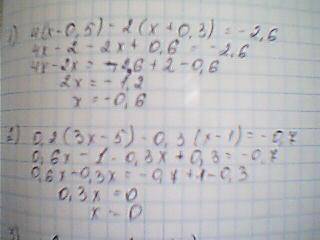 1) 4(x-0,5)-2(x+0,3)=-2,6
4x-2-2x+0,6=-2,6
4x-2x=-2,6+2-0,6
2x=-1,2
x=-0,6
2) 0,2(3x-5)-0,3(x-1)=-0,7
0,6x-1-0,3x+0,3=-0,7
0,6x-0,3x=-0,7+1-0,3
0,3x=0
x=0